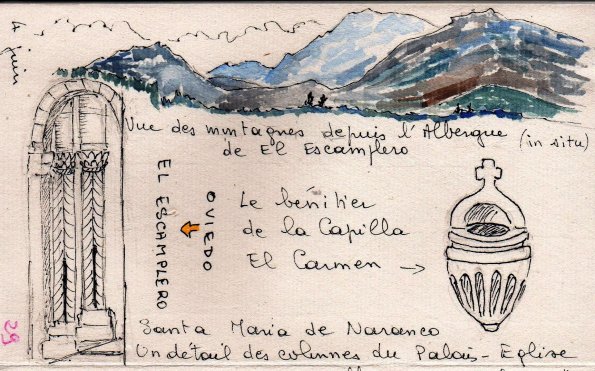 4 juin
Vue des montagnes depuis l'Albergue (in situ)
de El Escamplero
OVIEDO
EL ESCAMPLERO
Le bénitier
de la Capilla
El Carmen →
Santa Maria de Naranco
Un détail des colonnes du Palais-Eglise
29